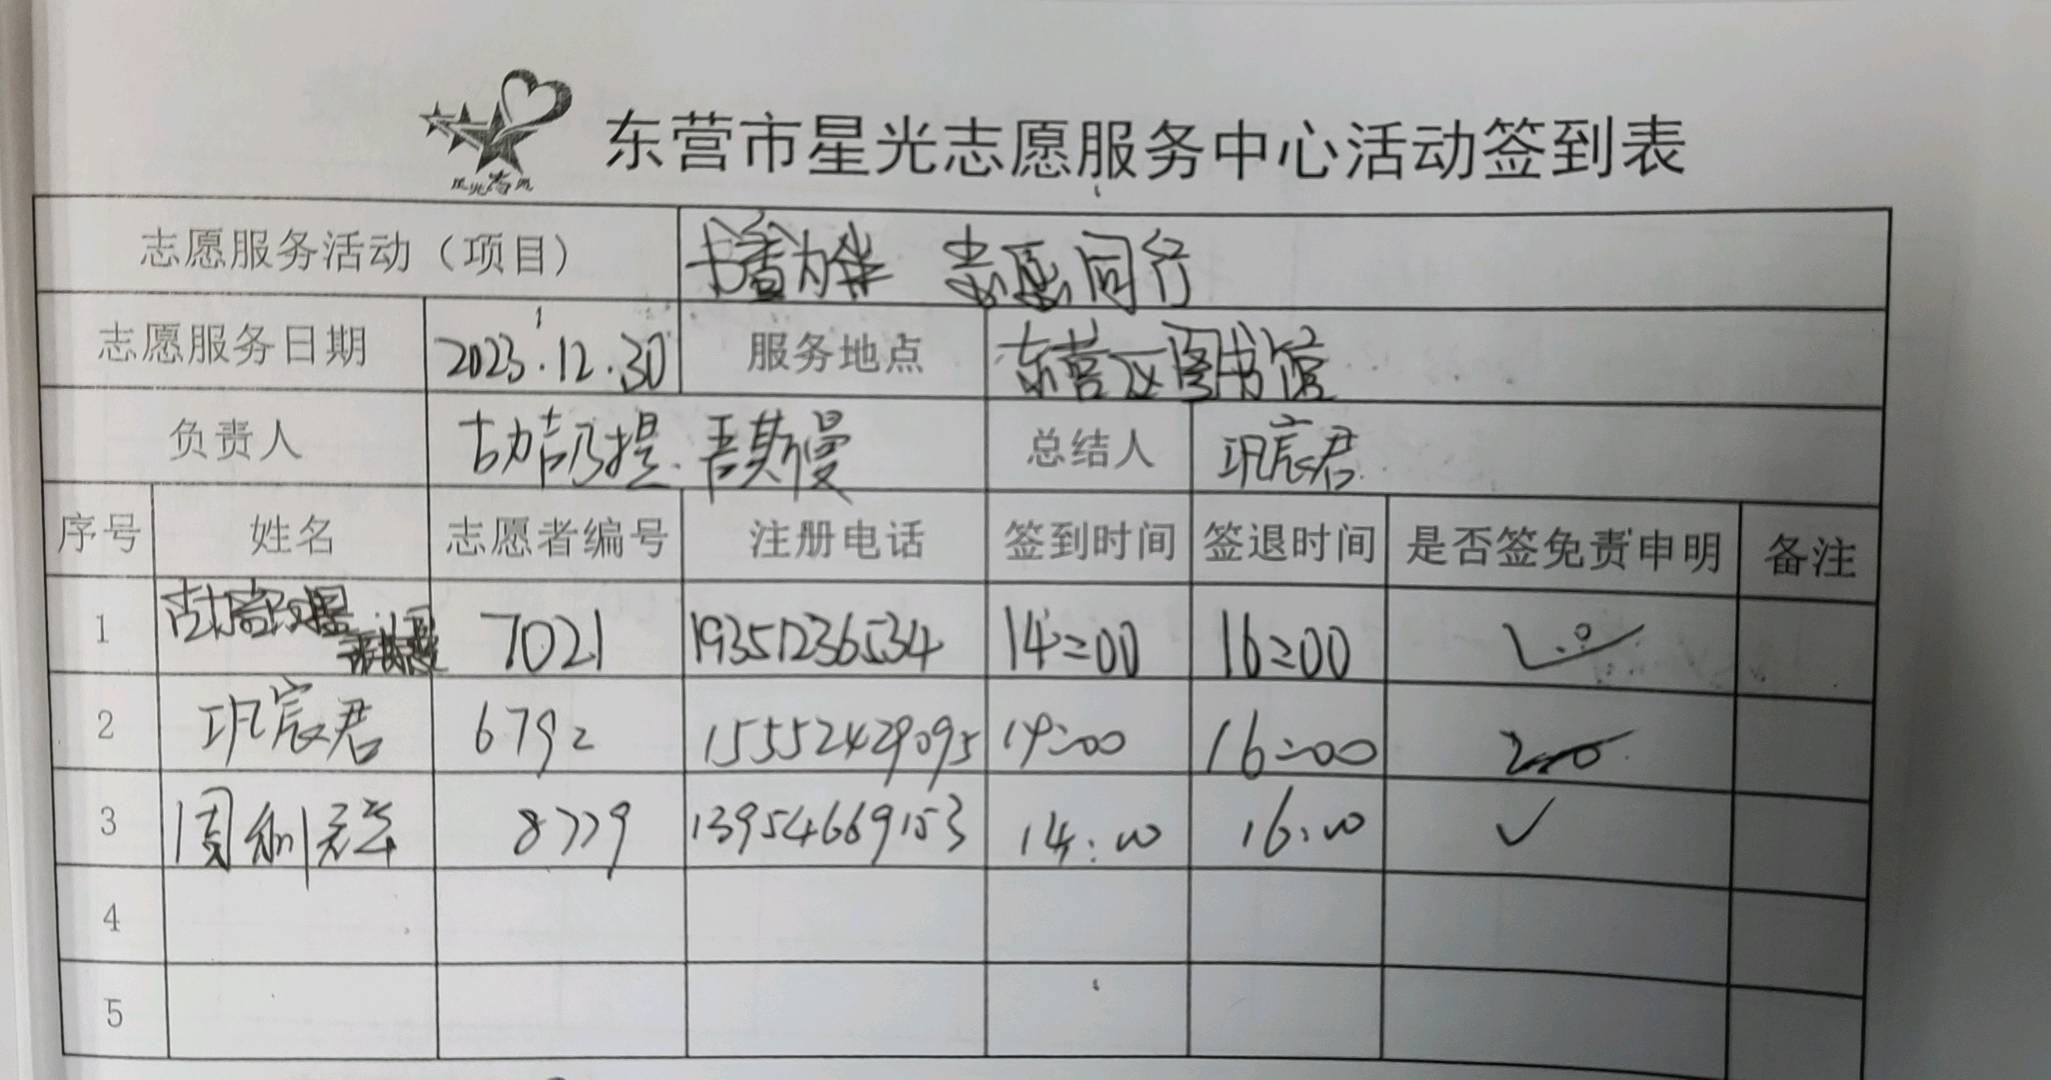 星光志愿
东营市星光志愿服务中心活动签到表
志愿服务活动（项目） 书香为伴 志愿同行
志愿服务日期 2023.12.30 服务地点 东营区图书馆
负责人 吾斯曼 总结人 巩宸君
序号 姓名 志愿者编号 注册电话 签到时间 签退时间 是否签免责申明 备注
1 7021 19351236534 14:00 16:00 ✓
2 巩宸君 6792 15552429095 14:00 16:00
3 周 8779 13954669153 14:00 16:00 ✓
4
5